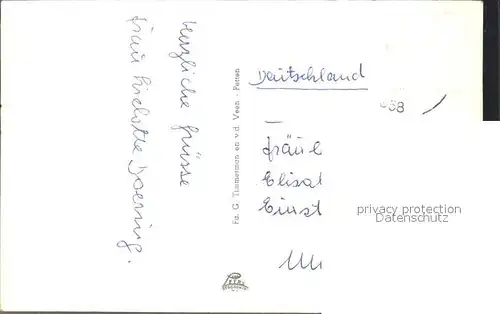 Herzliche Grüsse
Frau Liselotte Doering.
Fa. G. Timmerman en v.d. Veen - Petten
Deutschland
Fräul
Elisat
Einst
privacy protection
Datenschutz